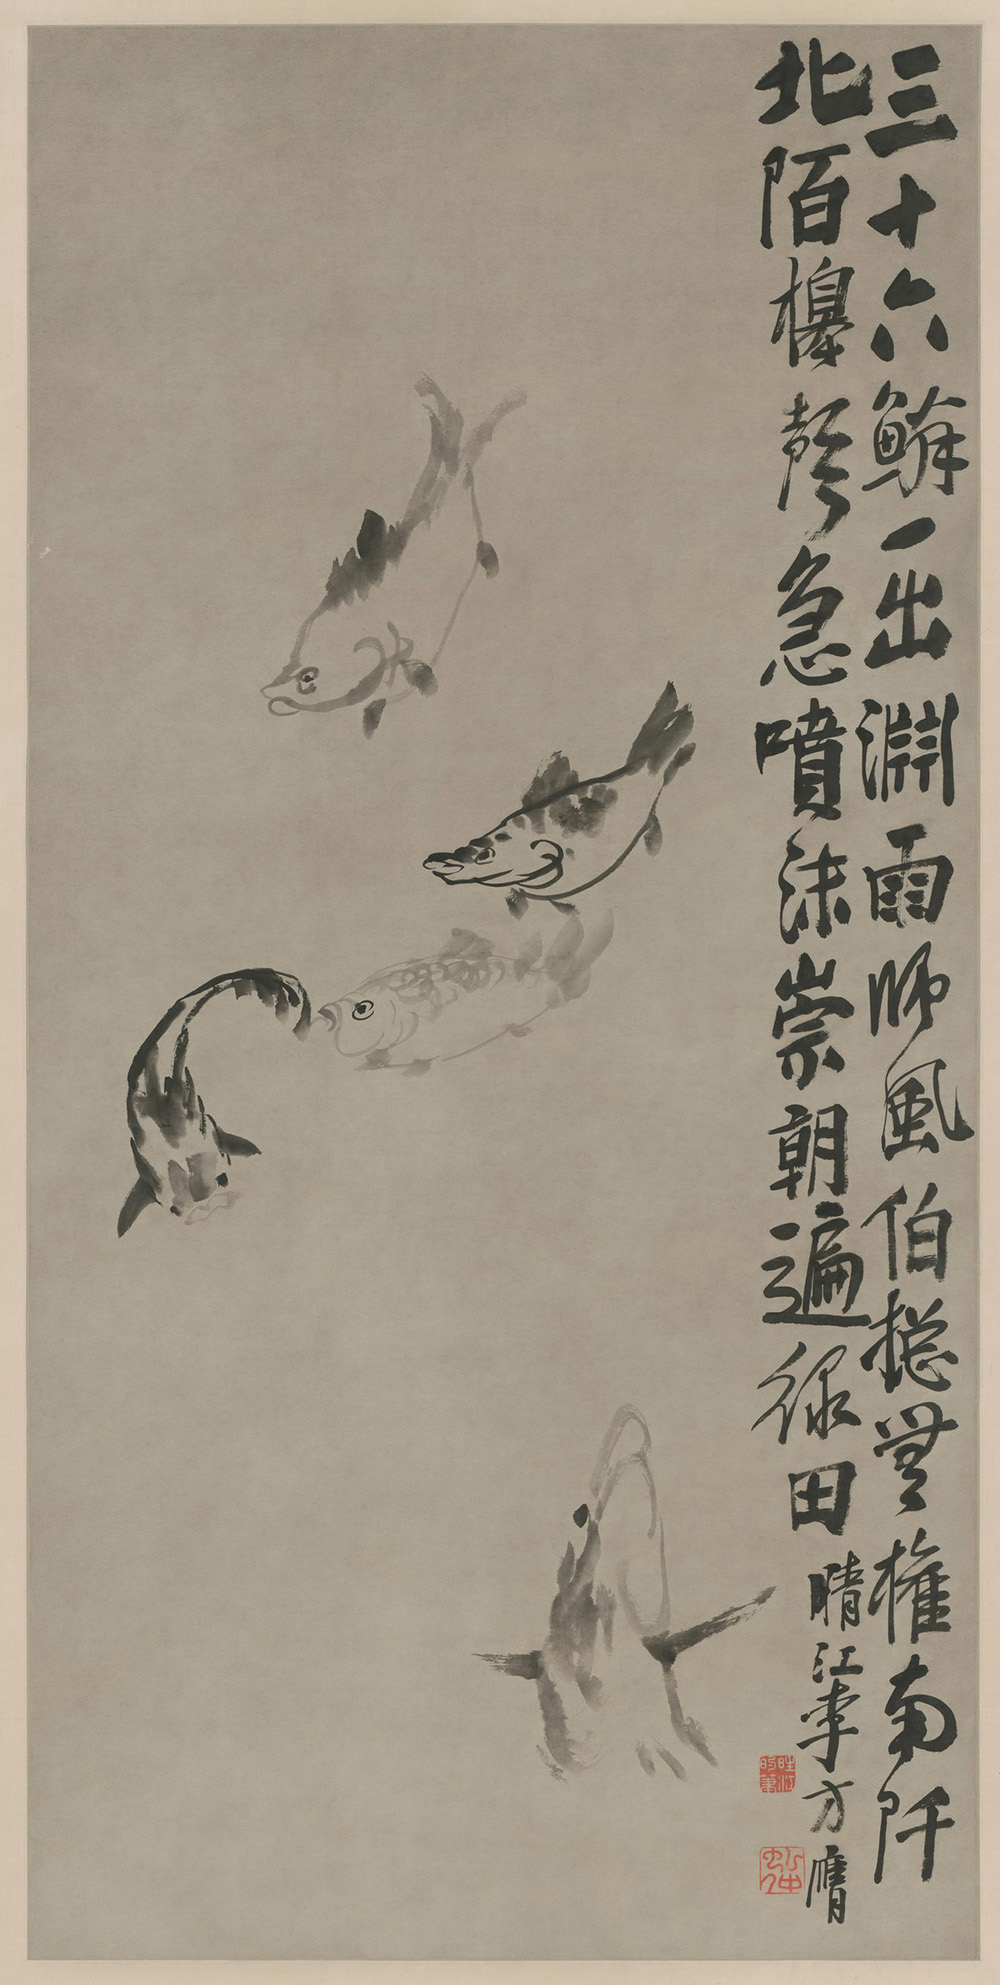 三十六鱗一出淵雨師風伯揔無權南阡
北陌槹聲急噴沫崇朝遍綠田
晴江李方膺
虬仲